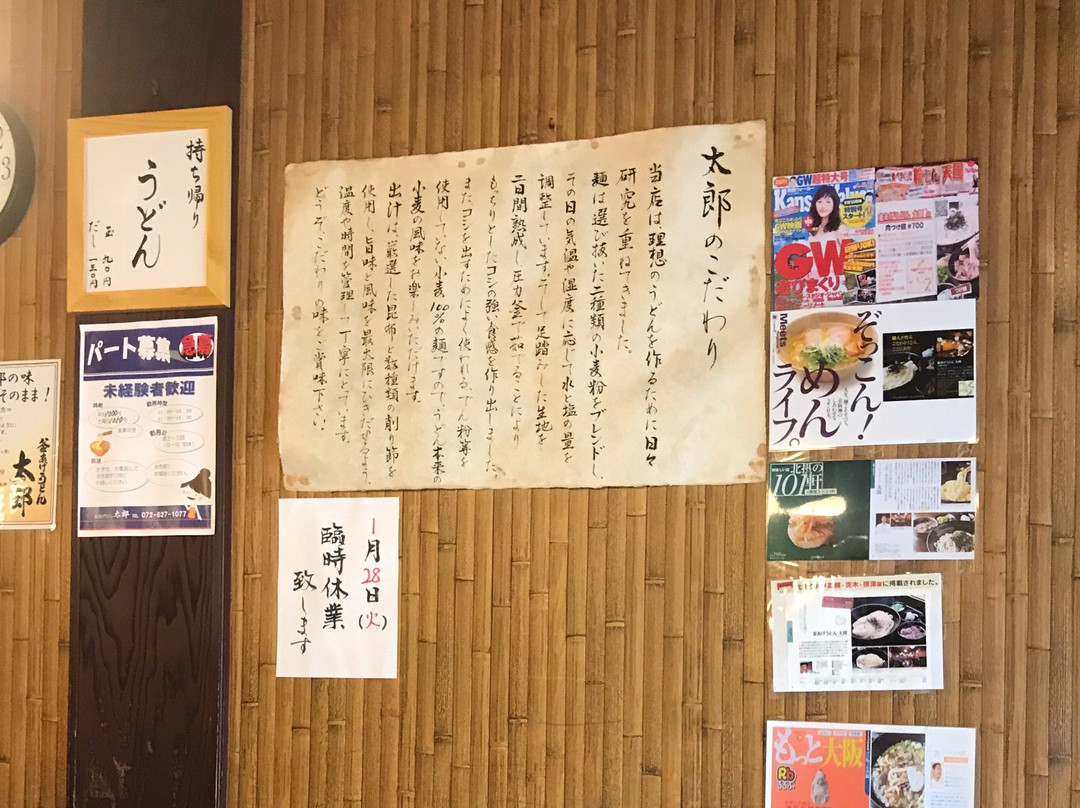 持ち帰り
うどん
玉 九〇円
だし 一三〇円
パート募集
急募
未経験者歓迎
太郎 TEL 072-627-1077
の味
そのまま!
釜あげうどん
太郎
太郎のこだわり
当店は理想のうどんを作るために日々
研究を重ねてきました。
麺は選び抜いた二種類の小麦粉をブレンドし、
その日の気温や湿度に応じて水と塩の量を
調整しています。そして足踏みした生地を
二日間熟成し圧力釜で茹でることにより
もっちりとしたコシの強い食感を作り出しました。
またコシを出すためによく使われる、でん粉等を
使用してない小麦100%の麺ですので、うどん本来の
小麦の風味をお楽しみいただけます。
出汁は厳選した昆布と数種類の削り節を
使用し、旨味と風味を最大限にひきだせるよう、
温度や時間を管理し丁寧にとってます。
どうぞ、こだわりの味をご賞味下さい。
1月28日(火)
臨時休業
致します
GW超特大号
Kans
GW
遊びまくり
肉つけ麺 ¥700
Meets
ぞっこん!
めん
ライフ。
北摂の
101軒
茨木・摂津版に掲載されました。
釜あげうどん 太郎
もっと大阪
Rb